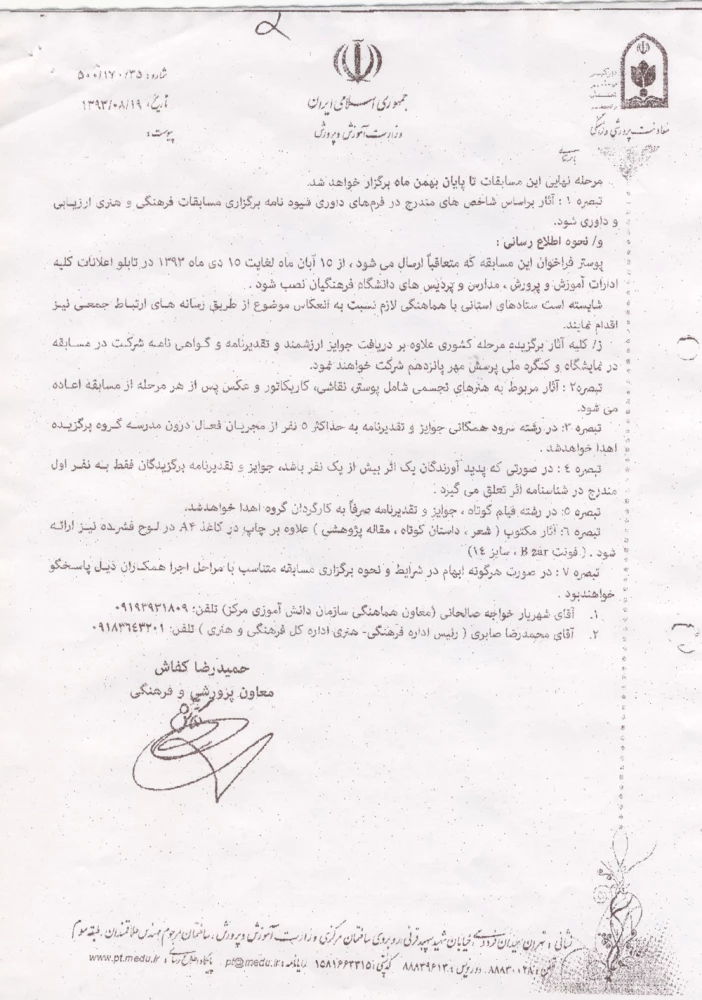 شماره: ۵۰۰/۱۷۰/۳۵
تاریخ: ۱۳۹۳/۰۸/۱۹
پیوست:
جمهوری اسلامی ایران
وزارت آموزش و پرورش
معاونت پرورشی و فرهنگی
مرحله نهایی این مسابقات تا پایان بهمن ماه برگزار خواهد شد.
تبصره ۱ : آثار براساس شاخص های مندرج در فرم‌های داوری شیوه نامه برگزاری مسابقات فرهنگی و هنری ارزیابی
و داوری شود.
و/ نحوه اطلاع رسانی :
پوستر فراخوان این مسابقه که متعاقباً ارسال می شود ، از ۱۵ آبان ماه لغایت ۱۵ دی ماه ۱۳۹۳ در تابلو اعلانات کلیه
ادارات آموزش و پرورش ، مدارس و پردیس های دانشگاه فرهنگیان نصب شود .
شایسته است ستادهای استانی با هماهنگی لازم نسبت به انعکاس موضوع از طریق رسانه های ارتباط جمعی نیز
اقدام نمایند.
ز/ کلیه آثار برگزیده مرحله کشوری علاوه بر دریافت جوایز ارزشمند و تقدیرنامه و گواهی نامه شرکت در مسابقه
در نمایشگاه و کنگره ملی پرسش مهر پانزدهم شرکت خواهند نمود.
تبصره۲ : آثار مربوط به هنرهای تجسمی شامل پوستر، نقاشی، کاریکاتور و عکس پس از هر مرحله از مسابقه اعاده
می شود.
تبصره ۳: در رشته سرود همگانی جوایز و تقدیرنامه به حداکثر ۵ نفر از مجریان فعال درون مدرسه گروه برگزیده
اهدا خواهدشد .
تبصره ۴ : در صورتی که پدید آورندگان یک اثر بیش از یک نفر باشد، جوایز و تقدیرنامه برگزیدگان فقط به نفر اول
مندرج در شناسنامه اثر تعلق می گیرد .
تبصره ۵: در رشته فیلم کوتاه ، جوایز و تقدیرنامه صرفاً به کارگردان گروه اهدا خواهدشد.
تبصره ۶: آثار مکتوب ( شعر ، داستان کوتاه ، مقاله پژوهشی ) علاوه بر چاپ در کاغذ A۴ در لوح فشرده نیز ارائه
شود . ( فونت B zar ، سایز ۱۴)
تبصره ۷ : در صورت هرگونه ابهام در شرایط و نحوه برگزاری مسابقه متناسب با مراحل اجرا همکاران ذیل پاسخگو
خواهندبود .
۱. آقای شهریار خواجه صالحانی (معاون هماهنگی سازمان دانش آموزی مرکز) تلفن: ۰۹۱۹۳۹۳۱۸۰۹
۲. آقای محمدرضا صابری ( رئیس اداره فرهنگی- هنری اداره کل فرهنگی و هنری ) تلفن: ۰۹۱۸۳۶۴۳۲۰۱
حمیدرضا کفاش
معاون پرورشی و فرهنگی
نشانی : تهران میدان فردوسی خیابان شهید سپهبد قرنی، روبروی ساختمان مرکزی وزارت آموزش و پرورش، ساختمان مرحوم مهندس علاقمندان، طبقه سوم
تلفن: ۸۸۸۳۰۰۲۸ دورنویس: ۸۸۸۳۹۶۱۳ کدپستی: ۱۵۸۱۶۶۳۳۱۵ رایانامه: pt@medu.ir پایگاه اطلاع رسانی: www.pt.medu.ir